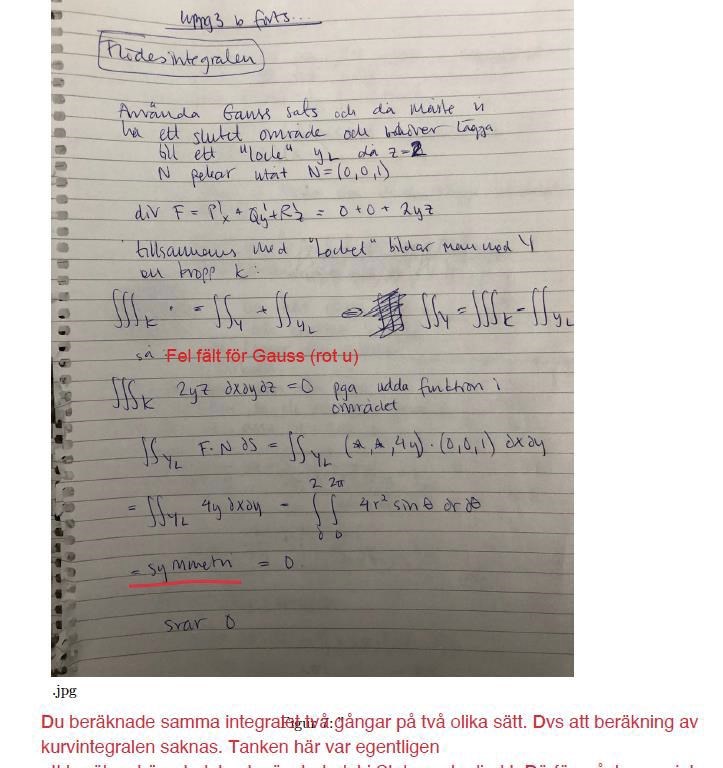 uppg3 b forts...
Flödesintegralen
Använda Gauss sats och då måste vi
ha ett slutet område och behöver lägga
till ett "lock" y_L då z=2
N pekar utåt N=(0,0,1)
div F = P'x + Q'y + R'z = 0+0+2yz
tillsammans med "locket" bildar man med Y
en kropp K:
∭_K · = ∬_Y + ∬_{Y_L} ⇔ ∬_Y = ∭_K - ∬_{Y_L}
så Fel fält för Gauss (rot u)
∭_K 2yz ∂x∂y∂z = 0 pga udda funktion i
området
∬_{Y_L} F·N ∂S = ∬_{Y_L} (*,*,4y)·(0,0,1) ∂x∂y
= ∬_{Y_L} 4y ∂x∂y = ∫_0^2 ∫_0^{2π} 4r² sin θ ∂r ∂θ
= symmetri = 0
svar 0
.jpg
Du beräknade samma integral två gångar på två olika sätt. Dvs att beräkning av
kurvintegralen saknas. Tanken här var egentligen